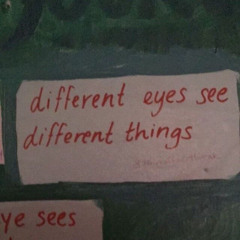 different eyes see
different things
ye sees